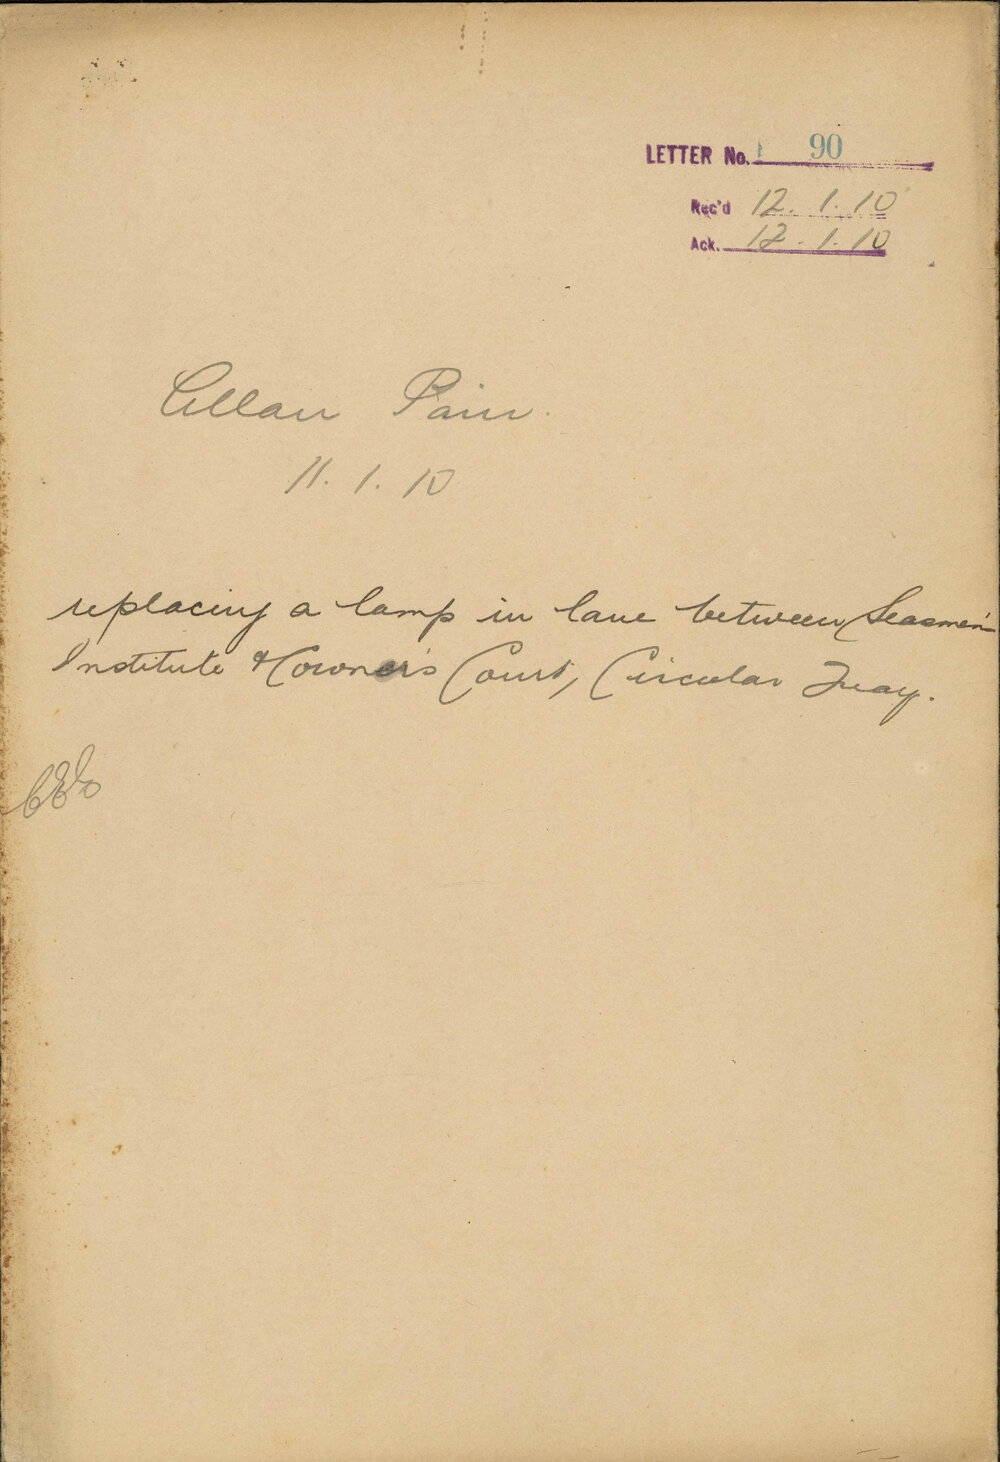 LETTER No. 90
Rec'd 12. 1. 10
Ack. 12. 1. 10
Allan Pain.
11. 1. 10
replacing a lamp in lane between Seamen's
Institute & Coroner's Court, Circular Quay.